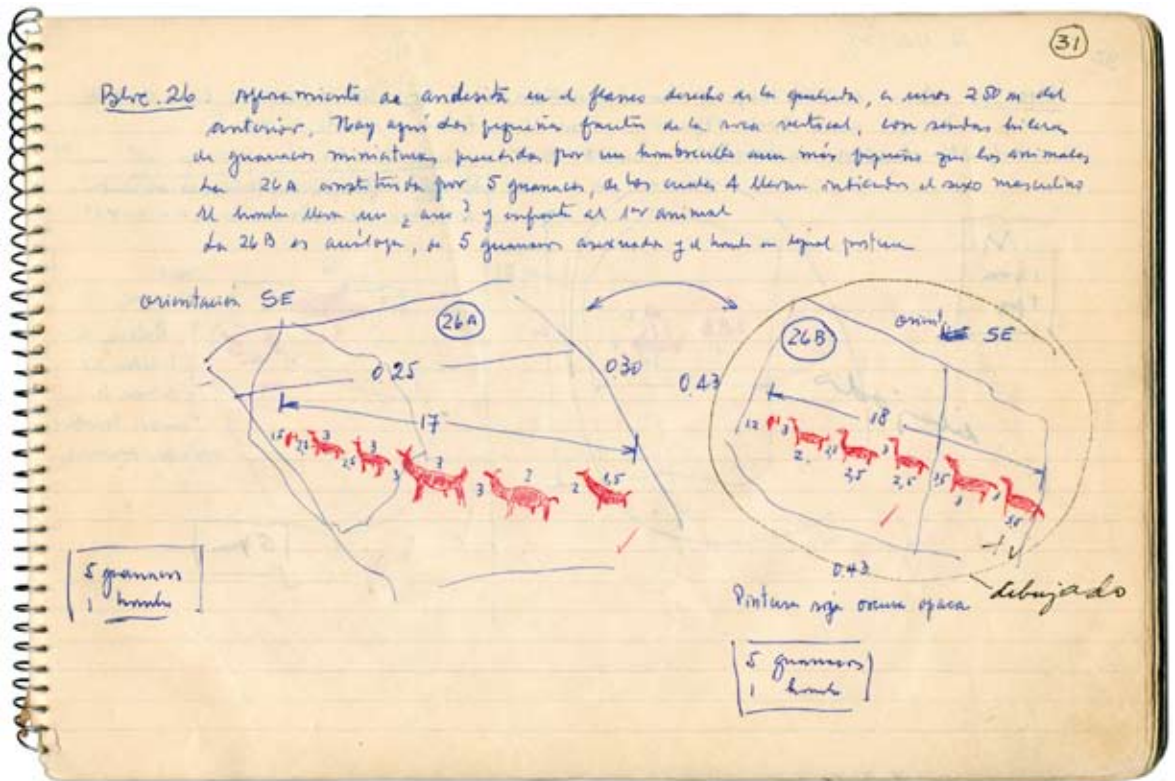 31
Bloc. 26 Afloramiento de andesita en el flanco derecho de la quebrada, a unos 250 m del
anterior. Hay aquí dos pequeños frentes de la roca vertical, con sendas hileras
de guanacos miniaturas, precedidas por un hombrecillo aun más pequeño que los animales
La 26A constituida por 5 guanacos, de los cuales 4 llevan indicados el sexo masculino
El hombre lleva un ¿arco? y enfrenta al 1er animal
La 26B es análoga, de 5 guanacos asexuados y el hombre en igual postura
orientación SE
26A
26B
orient. SE
0.25
0.30
0.43
17
18
1,5
3
3
3
2
1,5
2,5
3
3
2
12
3
2
2,5
3
2,5
3,5
3
3
3,5
5 guanacos
1 hombre
0.43
dibujado
Pintura roja oscura opaca
5 guanacos
1 hombre